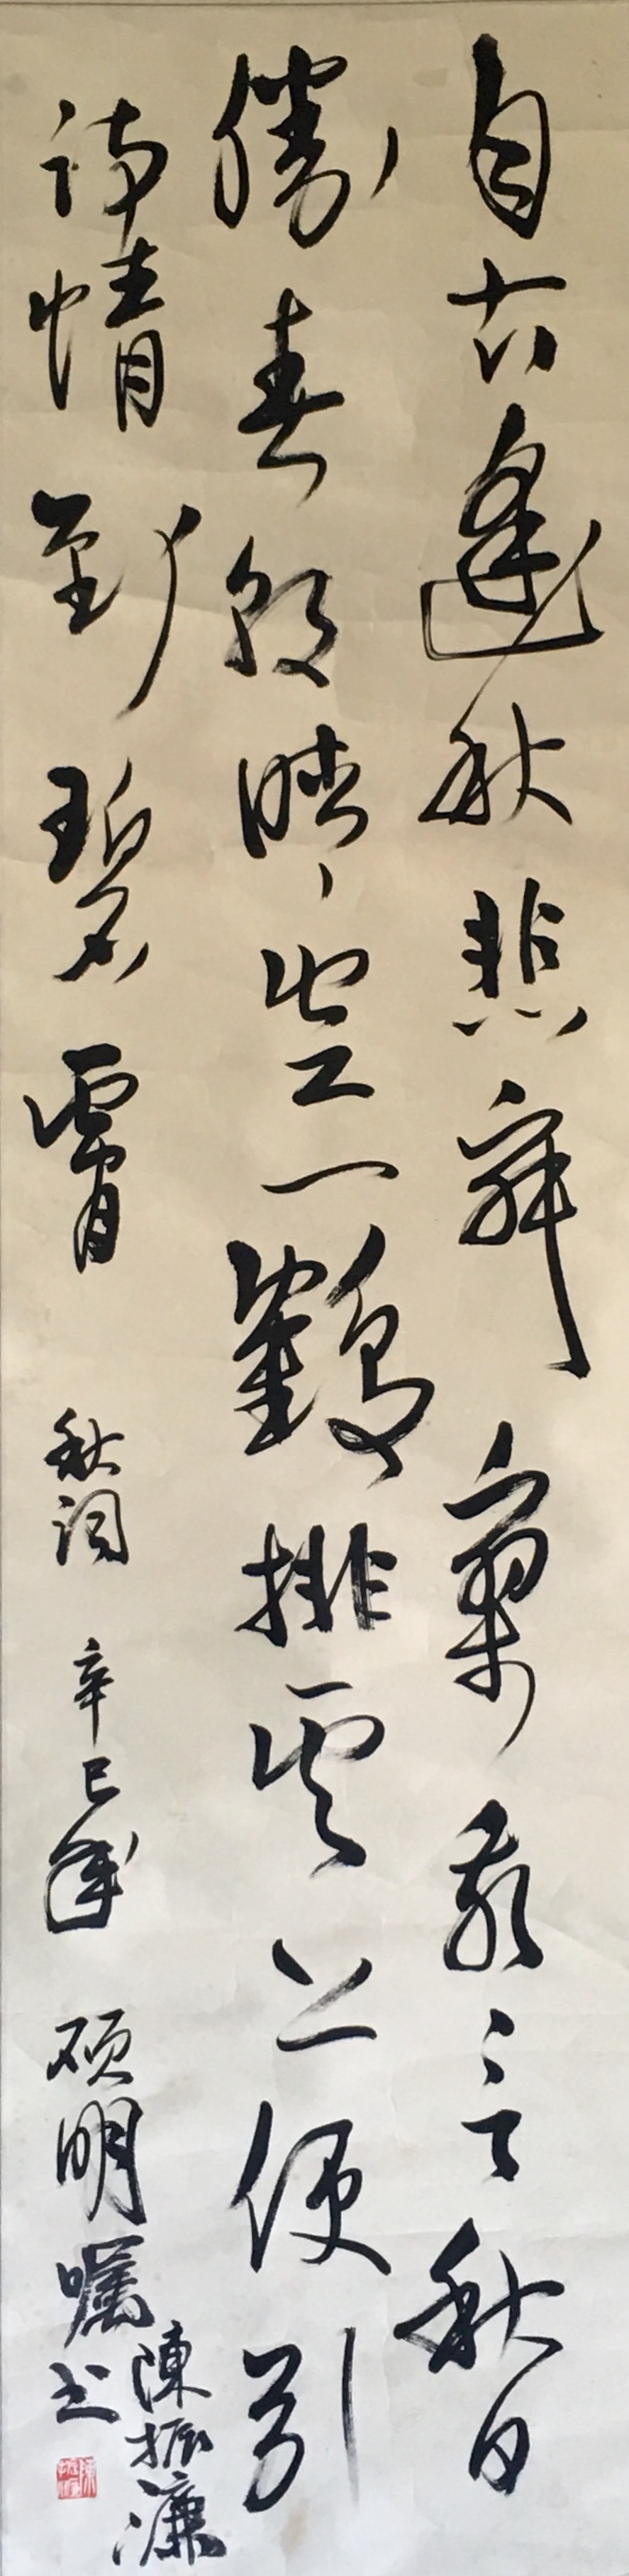 自古逢秋悲寂寥我言秋日
勝春朝晴空一鶴排雲上便引
詩情到碧霄 秋詞 辛巳年 硕明囑书
陳振濂